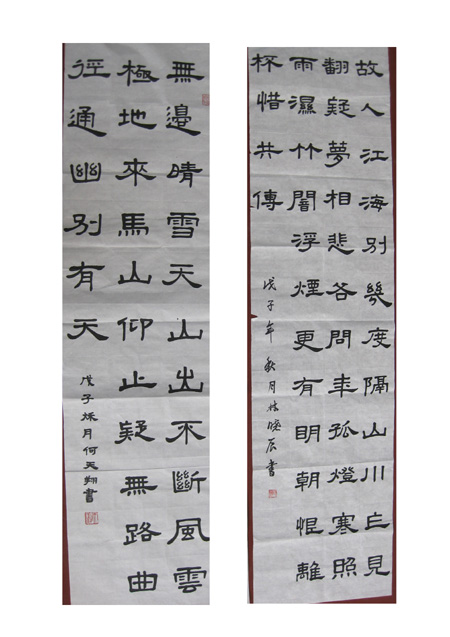 故人江海别幾度隔山川乍見
翻疑夢相悲各問年孤燈寒照
雨濕竹闇浮煙更有明朝恨離
杯惜共傳
戊子年秋月林曉辰書
無邊晴雪天山出不斷風雲
極地來馬山仰止疑無路曲
徑通幽别有天
戊子秋月何天翔書